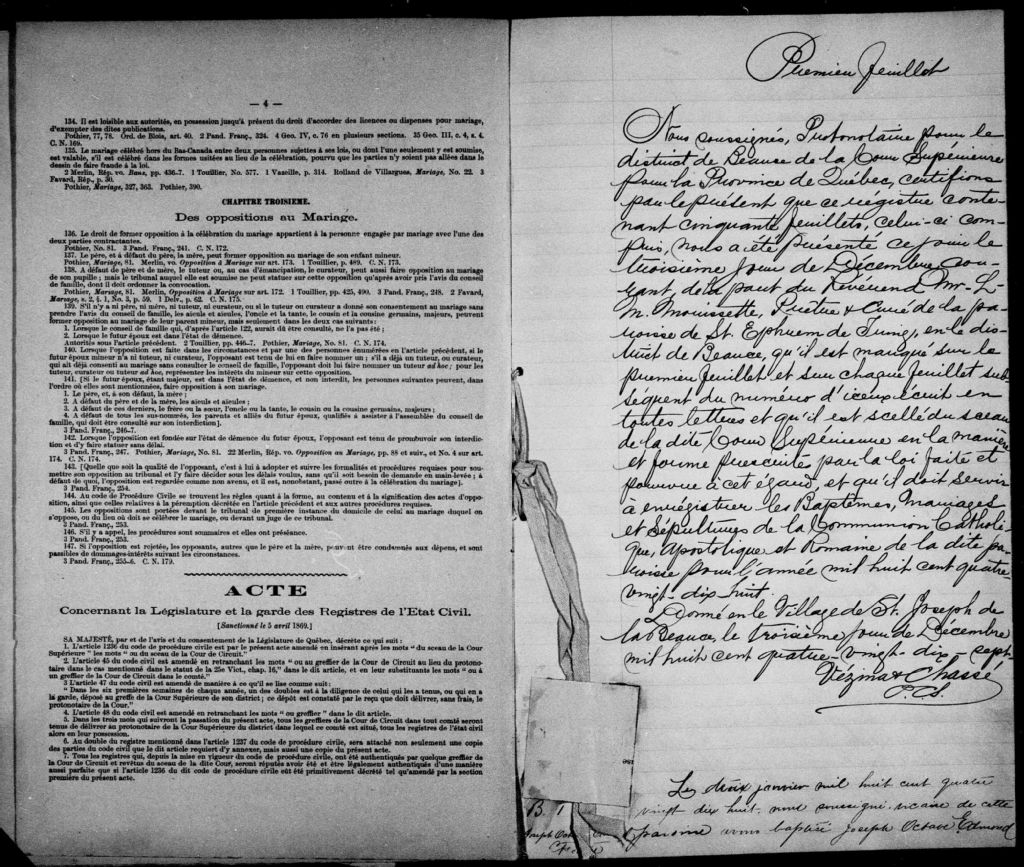 — 4 —
134. Il est loisible aux autorités, en possession jusqu'à présent du droit d'accorder des licences ou dispenses pour mariage,
d'exempter des dites publications.
Pothier, 77, 78. Ord. de Blois, art. 40. 2 Pand. Franç., 324. 4 Geo. IV, c. 76 en plusieurs sections. 35 Geo. III, c. 4, s. 4.
C. N. 169.
135. Le mariage célébré hors du Bas-Canada entre deux personnes sujettes à ses lois, ou dont l'une seulement y est soumise,
est valable, s'il est célébré dans les formes usitées au lieu de la célébration, pourvu que les parties n'y soient pas allées dans le
dessin de faire fraude à la loi.
2 Merlin, Rép. vo. Bans, pp. 436-7. 1 Toullier, No. 577. 1 Vazeille, p. 314. Rolland de Villargues, Mariage, No. 22. 3
Favard, Rép., p. 30.
Pothier, Mariage, 327, 363. Pothier, 390.
CHAPITRE TROISIEME.
Des oppositions au Mariage.
136. Le droit de former opposition à la célébration du mariage appartient à la personne engagée par mariage avec l'une des
deux parties contractantes.
Pothier, No. 81. 3 Pand. Franç., 241. C. N. 172.
137. Le père, et à défaut du père, la mère, peut former opposition au mariage de son enfant mineur.
Pothier, Mariage, 81. Merlin, vo. Opposition à Mariage sur art. 173. 1 Touillier, p. 489. C. N. 173.
138. A défaut de père et de mère, le tuteur ou, au cas d'émancipation, le curateur, peut aussi faire opposition au mariage
de son pupille ; mais le tribunal auquel elle est soumise ne peut statuer sur cette opposition qu'après avoir pris l'avis du conseil
de famille, dont il doit ordonner la convocation.
Pothier, Mariage, 81. Merlin, Opposition à Mariage sur art. 172. 1 Touillier, pp. 425, 490. 3 Pand. Franç., 248. 2 Favard,
Mariage, s. 2, § 1, No. 3, p. 59. 1 Delv., p. 62. C. N. 175.
139. S'il n'y a ni père, ni mère, ni tuteur, ni curateur, ou si le tuteur ou curateur a donné son consentement au mariage sans
prendre l'avis du conseil de famille, les aïeuls et aïeules, l'oncle et la tante, le cousin et la cousine germains, majeurs, peuvent
former opposition au mariage de leur parent mineur, mais seulement dans les deux cas suivants :
1. Lorsque le conseil de famille qui, d'après l'article 122, aurait dû être consulté, ne l'a pas été ;
2. Lorsque le futur époux est dans l'état de démence.
Autorités sous l'article précédent. 2 Touillier, pp. 446-7. Pothier, Mariage, No. 81. C. N. 174.
140. Lorsque l'opposition est faite dans les circonstances et par une des personnes énumérées en l'article précédent, si le
futur époux mineur n'a ni tuteur, ni curateur, l'opposant est tenu de lui en faire nommer un ; s'il a déjà un tuteur, ou curateur,
qui ait déjà consenti au mariage sans consulter le conseil de famille, l'opposant doit lui faire nommer un tuteur ad hoc ; pour les
tuteur, curateur ou tuteur ad hoc, représenter les intérêts du mineur sur cette opposition.
141. [Si le futur époux, étant majeur, est dans l'état de démence, et non interdit, les personnes suivantes peuvent, dans
l'ordre où elles sont mentionnées, faire opposition à son mariage.
1. Le père, et, à son défaut, la mère ;
2. A défaut du père et de la mère, les aïeuls et aïeules ;
3. A défaut de ces derniers, le frère ou la sœur, l'oncle ou la tante, le cousin ou la cousine germains, majeurs ;
4. A défaut de tous les sus-nommés, les parents et alliés du futur époux, qualifiés à assister à l'assemblée du conseil de
famille, qui doit être consulté sur son interdiction].
3 Pand. Franç., 246-7.
142. Lorsque l'opposition est fondée sur l'état de démence du futur époux, l'opposant est tenu de promouvoir son interdic-
tion et d'y faire statuer sans délai.
3 Pand. Franç., 247. Pothier, Mariage, No. 81. 22 Merlin, Rép. vo. Opposition au Mariage, pp. 88 et suiv., et No. 4 sur art.
174. C. N. 174.
143. [Quelque soit la qualité de l'opposant, c'est à lui à adopter et suivre les formalités et procédures requises pour sou-
mettre son opposition au tribunal et l'y faire décider dans les délais voulus, sans qu'il soit besoin de demande en main-levée ; à
défaut de quoi, l'opposition est regardée comme non avenu, et il est, nonobstant, passé outre à la célébration du mariage].
3 Pand. Franç., 254.
144. Au code de Procédure Civile se trouvent les règles quant à la forme, au contenu et à la signification des actes d'oppo-
sition, ainsi que celles relatives à la péremption décrétée en l'article précédent et aux autres procédures requises.
145. Les oppositions sont portées devant le tribunal de première instance du domicile de celui au mariage duquel on
s'oppose, ou du lieu où doit se célébrer le mariage, ou devant un juge de ce tribunal.
3 Pand. Franç., 253.
146. S'il y a appel, les procédures sont sommaires et elles ont préséance.
3 Pand. Franç., 253.
147. Si l'opposition est rejetée, les opposants, autres que le père et la mère, peuvent être condamnés aux dépens, et sont
passibles de dommages-intérêts suivant les circonstances.
3 Pand. Franç., 255-6. C. N. 179.
ACTE
Concernant la Législature et la garde des Registres de l'Etat Civil.
[Sanctionné le 5 avril 1869.]
SA MAJESTÉ, par et de l'avis et du consentement de la Législature de Québec, décrète ce qui suit :
1. L'article 1236 du code de procédure civile est par le présent acte amendé en insérant après les mots " du sceau de la Cour
Supérieure " les mots " ou du sceau de la Cour de Circuit."
2. L'article 45 du code civil est amendé en retranchant les mots " ou au greffier de la Cour de Circuit au lieu du protono-
taire dans le cas mentionné dans le statut de la 25e Vict., chap. 16," dans le dit article, et en leur substituant les mots " ou à
un greffier de la Cour de Circuit dans le comté."
3 L'article 47 du code civil est amendé de manière à ce qu'il se lise comme suit :
" Dans les six premières semaines de chaque année, un des doubles est à la diligence de celui qui les a tenus, ou qui en a
la garde, déposé au greffe de la Cour Supérieure de son district ; ce dépôt est constaté par le reçu que doit délivrer, sans frais, le
protonotaire de la Cour."
4. L'article 48 du code civil est amendé en retranchant les mots " ou greffier " dans le dit article.
5. Dans les trois mois qui suivront la passation du présent acte, tous les greffiers de la Cour de Circuit dans tout comté seront
tenus de délivrer au protonotaire de la Cour Supérieure du district dans lequel ce comté est situé, tous les registres de l'état civil
alors en leur possession.
6. Au double du registre mentionné dans l'article 1237 du code de procédure civile, sera attaché non seulement une copie
des parties du code civil que le dit article requiert d'y annexer, mais aussi une copie du présent acte.
7. Tous les registres qui, depuis la mise en vigueur du code de procédure civile, ont été authentiqués par quelque greffier de
la Cour de Circuit et revêtus du sceau de la dite Cour, seront réputés avoir été et être légalement authentiqués d'une manière
aussi parfaite que si l'article 1236 du dit code de procédure civile eût été primitivement décrété tel qu'amendé par la section
première du présent acte.
Premier feuillet
Nous soussignés, Protonotaire pour le
district de Beauce de la Cour Supérieure
pour la Province de Québec, certifions
par le présent que ce registre conte-
nant cinquante feuillets, celui-ci com-
pris, nous a été présenté ce jour le
troisième jour de Décembre cou-
rant, de la part du Révérend Mr. L.
M. Mouissette, Prêtre & Curé de la pa-
roisse de St. Ephrem de Tring, en le dis-
trict de Beauce, qu'il est marqué sur le
premier feuillet et sur chaque feuillet sub-
séquent du numéro d'iceux écrit en
toutes lettres et qu'il est scellé du sceau
de la dite Cour Supérieure en la manière
et forme prescrites par la loi faite et
pourvue à cet égard, et qu'il doit servir
à enregistrer les Baptêmes, Mariages
et Sépultures de la Communion Catholi-
que, Apostolique et Romaine de la dite pa-
roisse pour l'année mil huit cent quatre
vingt-dix huit.
Donné en le Village de St. Joseph de
la Beauce, le troisième jour de Décembre
mil huit cent quatre-vingt-dix-sept.
Vézina & Chassé
P. S.
B. 1
Joseph Oct
Le deux janvier mil huit cent quatre
vingt dix huit, nous soussigné vicaire de cette
paroisse avons baptisé Joseph Octave Edmond